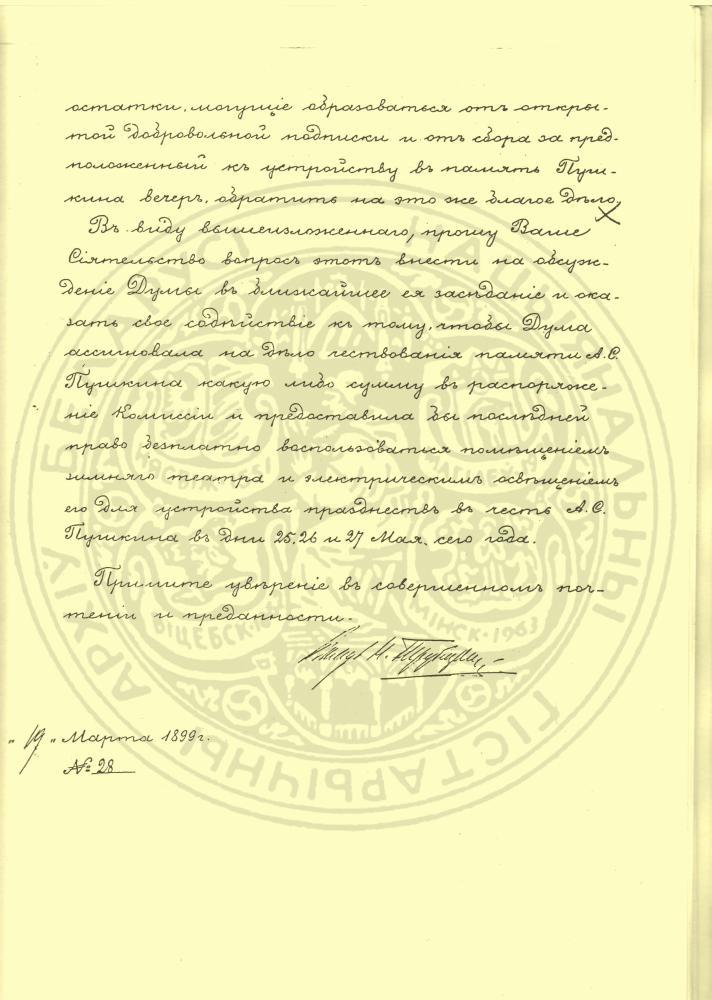 остатки, могущіе образоваться отъ откры-
той добровольной подписки и отъ сбора за пред-
положенный къ устройству въ память Пуш-
кина вечеръ, обратить на это же благое дѣло,
Въ виду вышеизложеннаго, прошу Ваше
Сіятельство вопросъ этотъ внести на обсуж-
деніе Думы въ ближайшее ея засѣданіе и ока-
зать свое содѣйствіе къ тому, чтобы Дума
ассигновала на дѣло чествованія памяти А.С.
Пушкина какую либо сумму въ распоряже-
ніе Комиссіи и предоставила бы послѣдней
право безплатно воспользоваться помѣщеніемъ
зимняго театра и электрическимъ освѣщеніемъ
его для устройства празднествъ въ честь А.С.
Пушкина въ дни 25, 26 и 27 Мая, сего года.
Примите увѣреніе въ совершенномъ поч-
теніи и преданности.
Князь Н. Трубецкой
"19" Марта 1899 г.
№ 28
НАЦЫЯНАЛЬНЫ ГІСТАРЫЧНЫ АРХІЎ БЕЛАРУСІ
МІНСК·1963